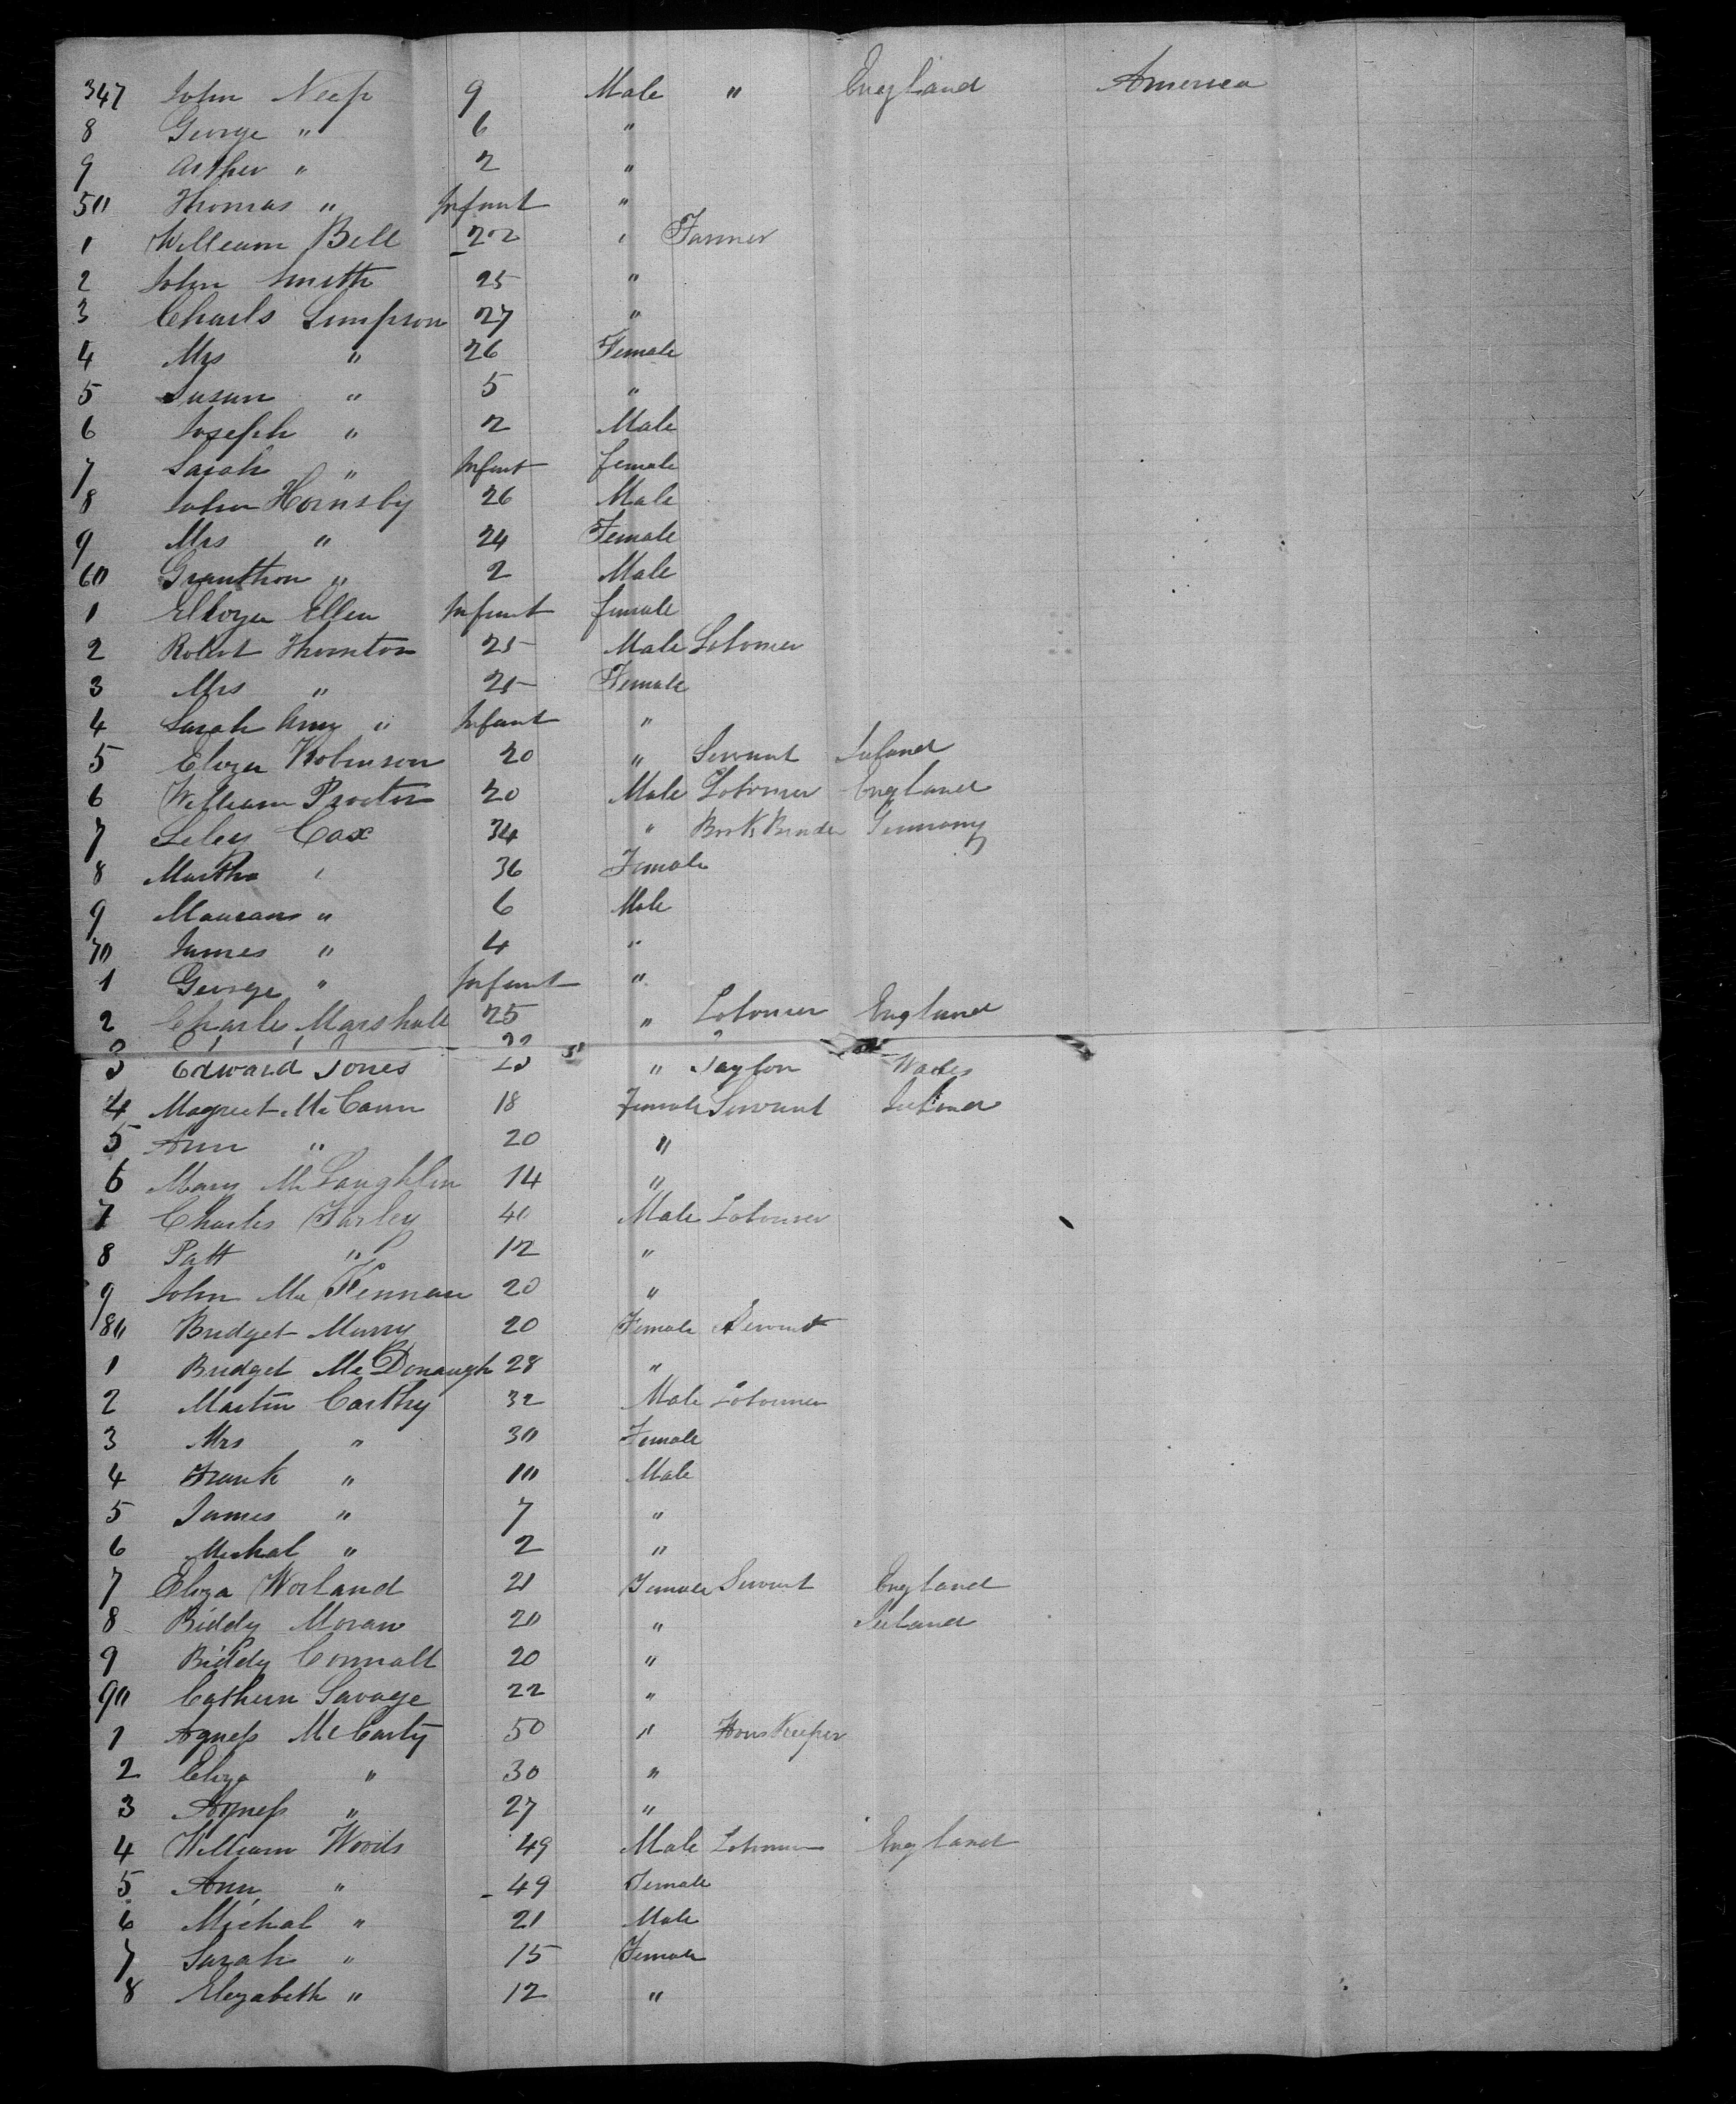 347 John Neep 9 Male " England America
8 George " 6 "
9 Arther " 2 "
50 Thomas " Infant "
1 William Bell 22 " Farmer
2 John Smith 25 "
3 Charls Simpson 27 "
4 Mrs " 26 Female
5 Susan " 5 "
6 Joseph " 2 Male
7 Sarah " Infant female
8 John Hornsby 26 Male
9 Mrs " 24 Female
60 Granthon " 2 Male
1 Ellen Infant female
2 Robert Thornton 25 Male Labourer
3 Mrs " 25 Female
4 Sarah Ann " Infant "
5 Eliza Robinson 20 " Servant Ireland
6 William Procter 20 Male Labourer England
7 Cox 34 " Book Binder Germany
8 Martha " 36 Female
9 " 6 Male
70 James " 4 "
1 George " Infant "
2 Charles Marshall 25 " Labourer England
3 Edward Jones 23 " Taylor Wales
4 Magreet McCann 18 Female Servant Ireland
5 Ann " 20 "
6 Mary McLaughlin 14 "
7 Charles Farley 40 Male Labourer
8 Patt " 12 "
9 John Mc Kennan 20 "
80 Bridget Murry 20 Female Servant
1 Bridget McDonaugh 28 "
2 Martin Carthy 32 Male Labourer
3 Mrs " 30 Female
4 Frank " 10 Male
5 James " 7 "
6 Michal " 2 "
7 Eliza Worland 21 Female Servant England
8 Biddy Moran 20 " Ireland
9 Biddy Connalt 20 "
90 Cathern Savage 22 "
1 Agness McCarty 50 " HousKeeper
2 Eliza " 30 "
3 Agness " 27 "
4 William Woods 49 Male Labourer England
5 Ann " 49 Female
6 Michal " 21 Male
7 Sarah " 15 Female
8 Elezabeth " 12 "